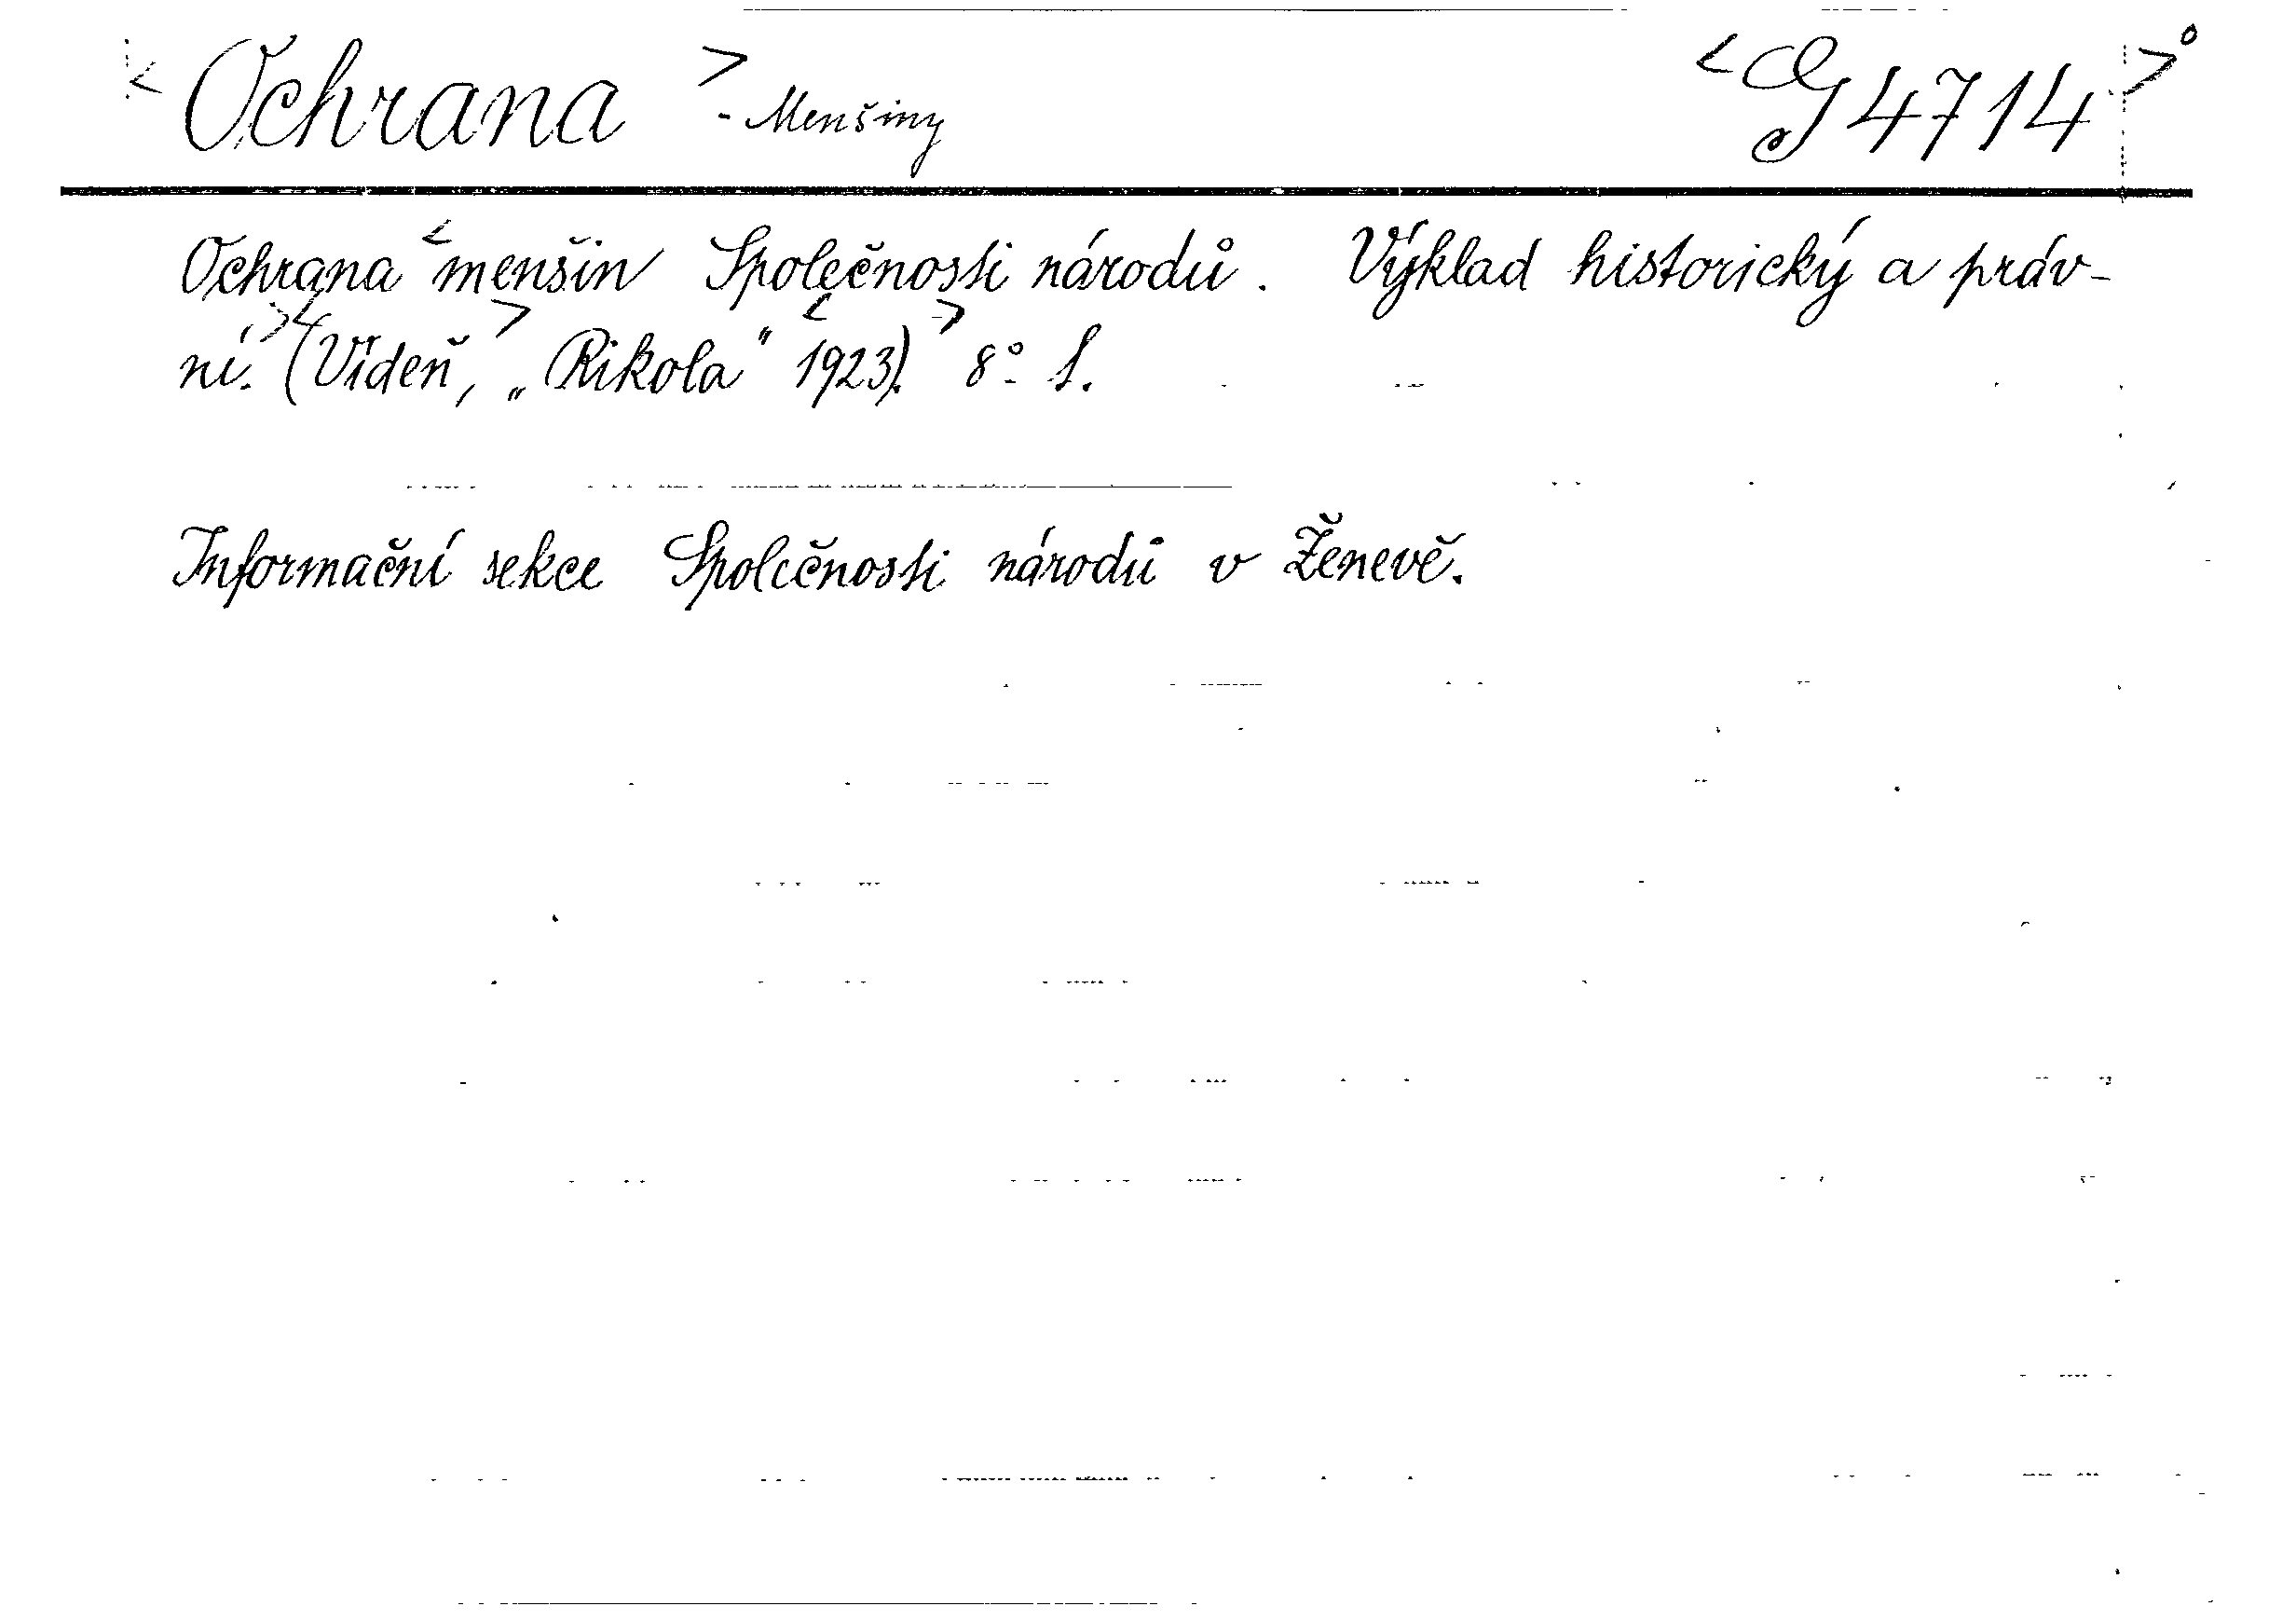 < Ochrana > - Menšiny <G 4714>°
Ochrana < menšin Společnosti národů. Výklad historický a práv-
ní. > < (Vídeň, > „Rikola" < 1923). > 8° S.
Informační sekce Společnosti národů v Ženevě.